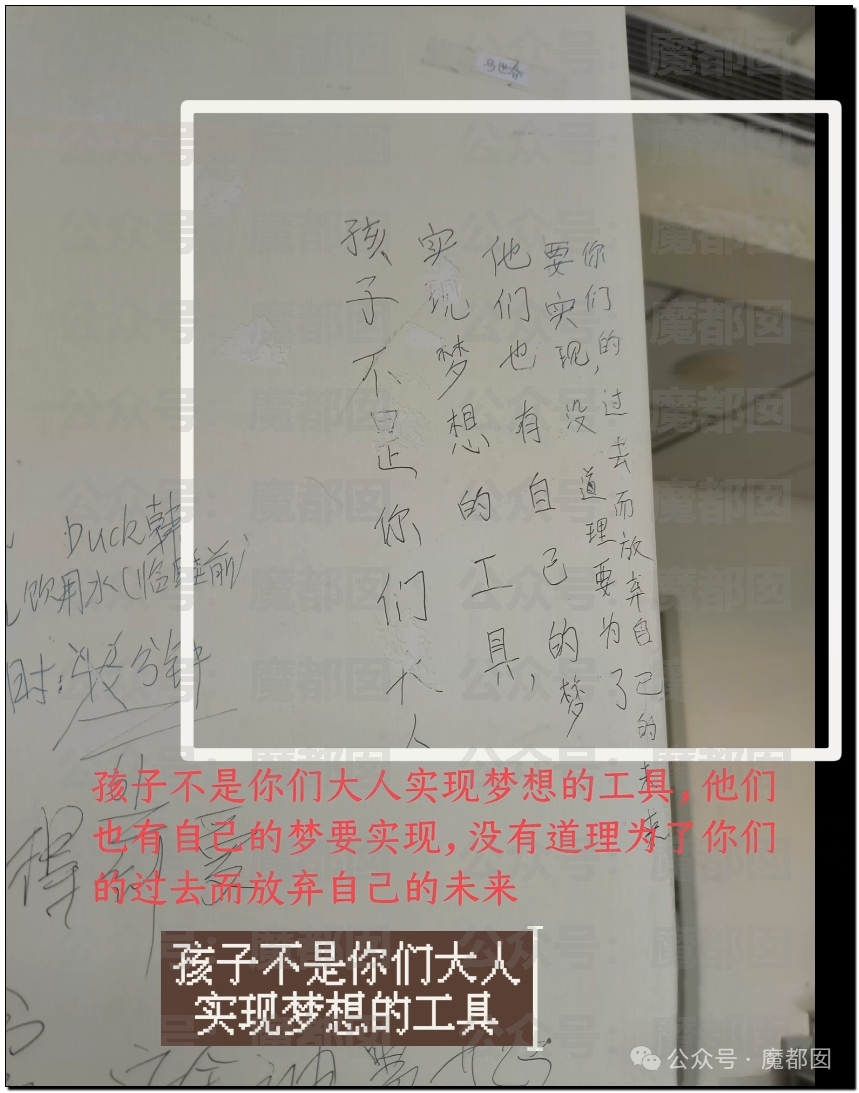 号世介
孩子不是你们大人
实现梦想的工具,
他们也有自己的梦
要实现,没道理要为了
你们的过去而放弃自己的未来
Duck韩
饮用水(临睡前)
时:
分钟
得
要
孩子不是你们大人实现梦想的工具,他们
也有自己的梦要实现,没有道理为了你们
的过去而放弃自己的未来
孩子不是你们大人
实现梦想的工具
公众号·魔都囡